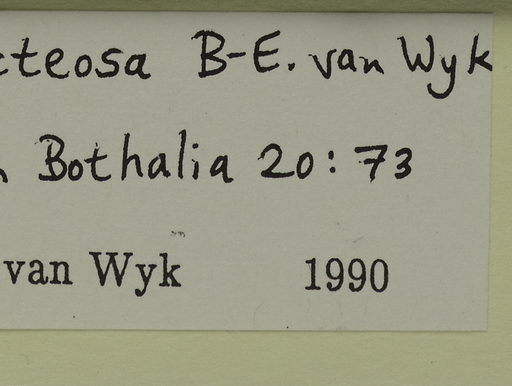 cteosa B-E. van Wyk
Bothalia 20: 73
van Wyk 1990